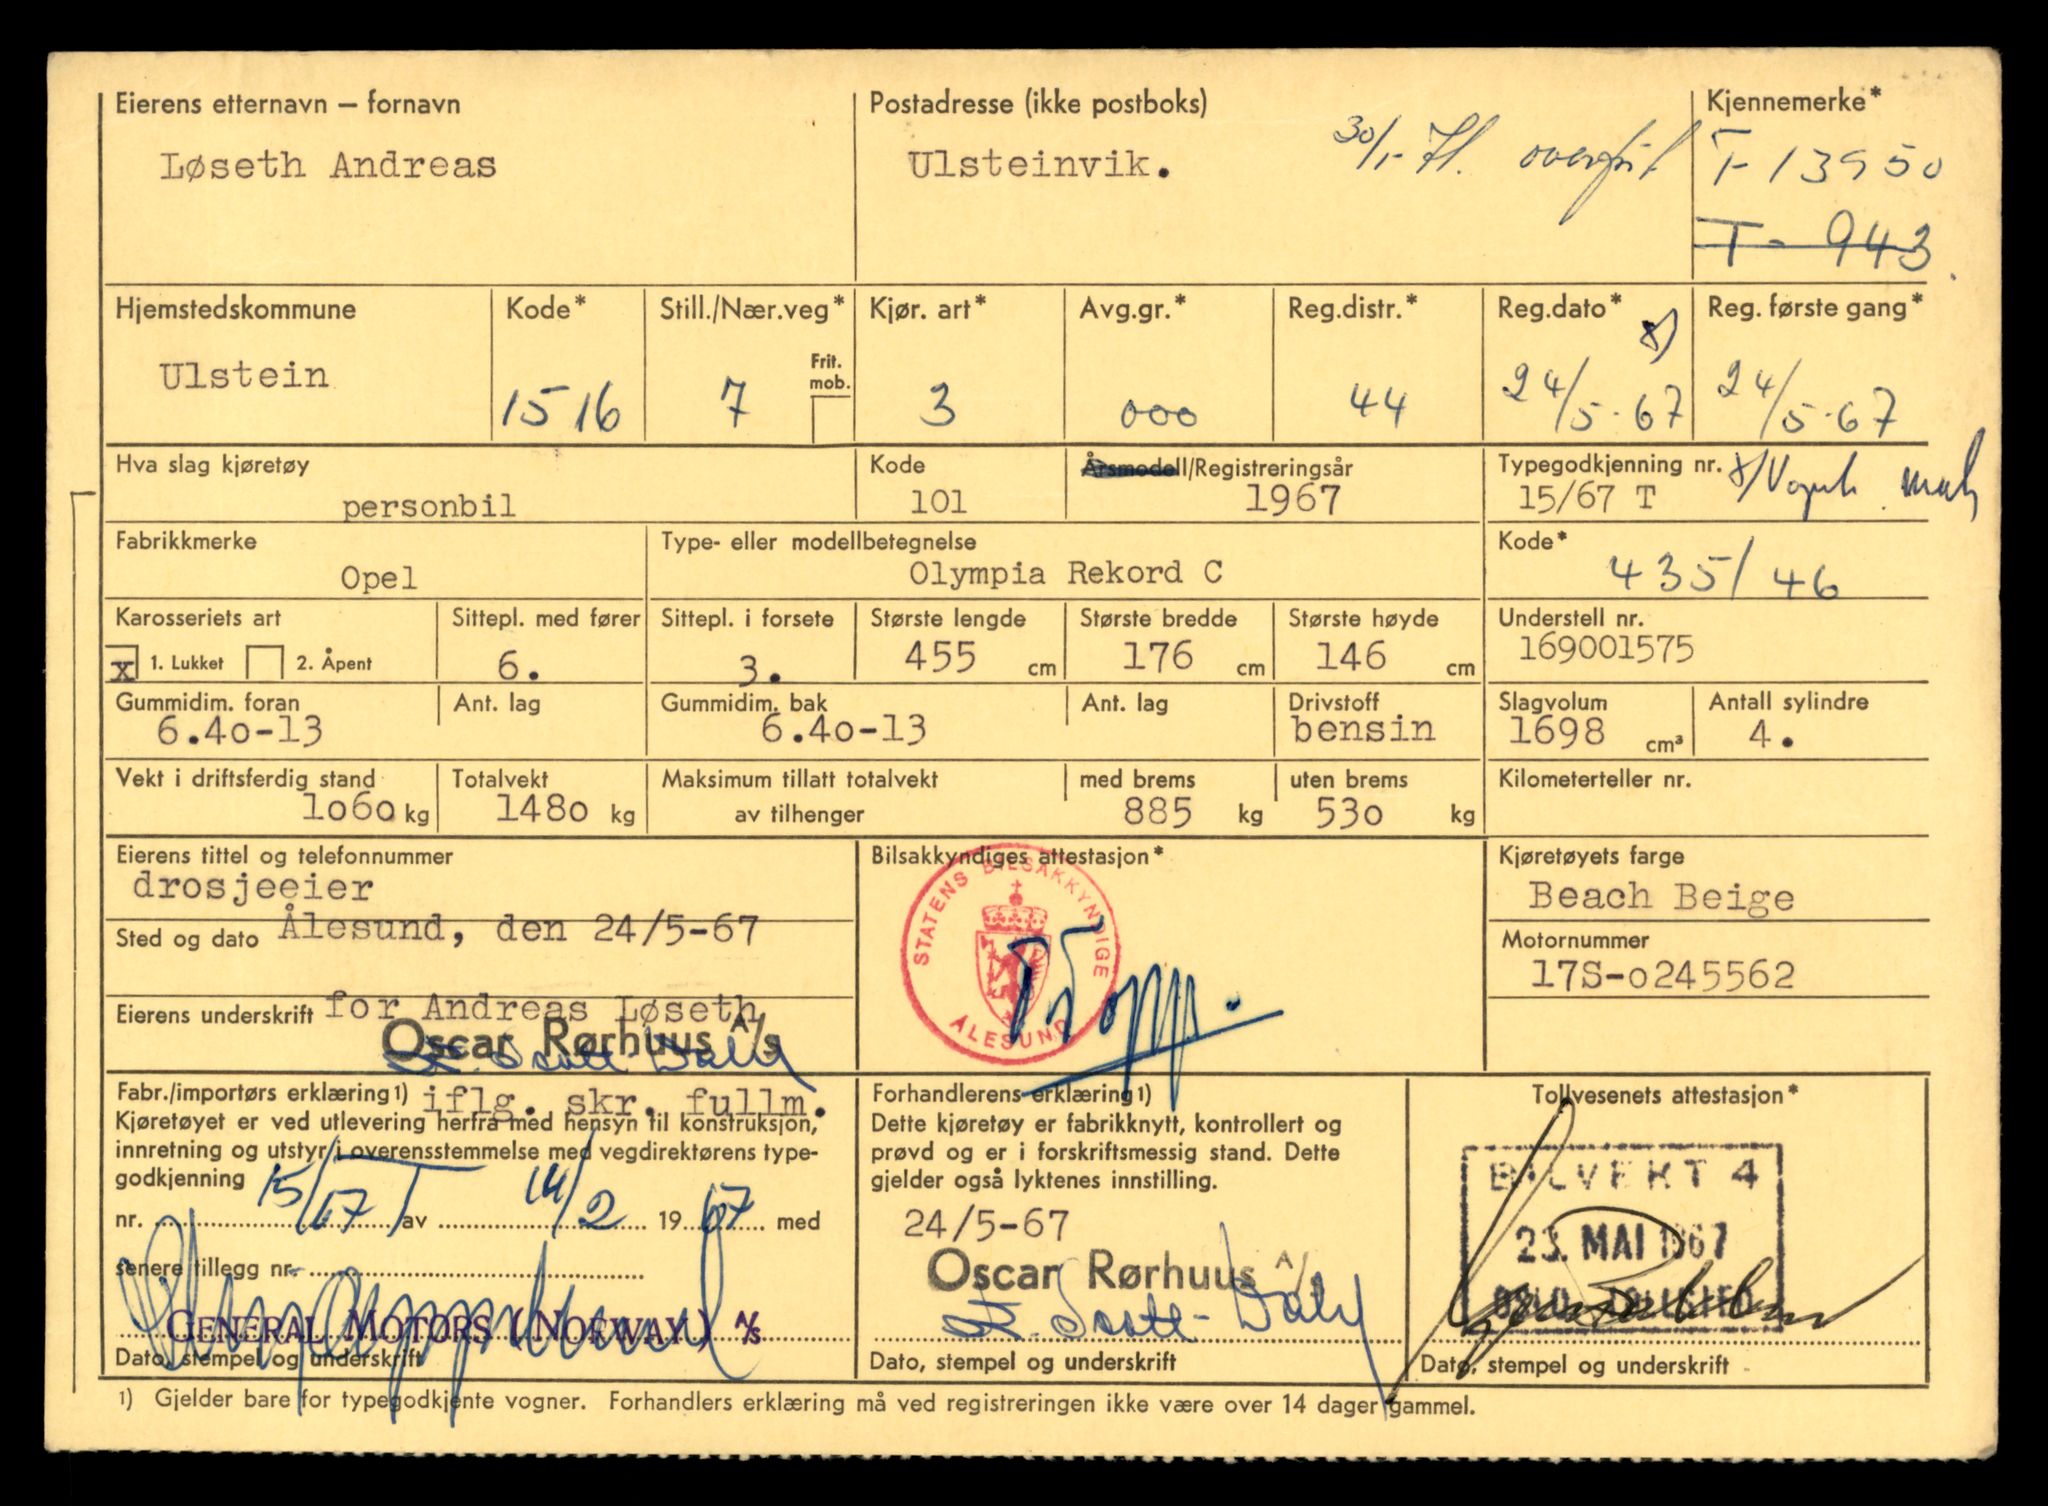 Eierens etternavn – fornavn
Løseth Andreas
Postadresse (ikke postboks)
Ulsteinvik.
30/1-71. overført
Kjennemerke*
T-13950
T-943.
Hjemstedskommune
Ulstein
Kode*
1516
Still./Nær.veg*
7
Frit. mob.
Kjør. art*
3
Avg.gr.*
000
Reg.distr.*
44
Reg.dato* x)
24/5-67
Reg. første gang*
24/5-67
Hva slag kjøretøy
personbil
Kode
101
Årsmodell/Registreringsår
1967
Typegodkjenning nr.
15/67 T
Fabrikkmerke
Opel
Type- eller modellbetegnelse
Olympia Rekord C
Kode*
435/46
Karosseriets art
x 1. Lukket 2. Åpent
Sittepl. med fører
6.
Sittepl. i forsete
3.
Største lengde
455 cm
Største bredde
176 cm
Største høyde
146 cm
Understell nr.
169001575
Gummidim. foran
6.4o-13
Ant. lag
Gummidim. bak
6.4o-13
Ant. lag
Drivstoff
bensin
Slagvolum
1698 cm³
Antall sylindre
4.
Vekt i driftsferdig stand
1o6o kg
Totalvekt
148o kg
Maksimum tillatt totalvekt
av tilhenger
med brems
885 kg
uten brems
53o kg
Kilometerteller nr.
Eierens tittel og telefonnummer
drosjeeier
Sted og dato Ålesund, den 24/5-67
Eierens underskrift for Andreas Løseth
Oscar Rørhuus A/S
Bilsakkyndiges attestasjon*
STATENS BILSAKKYNDIGE
ÅLESUND
Kjøretøyets farge
Beach Beige
Motornummer
17S-o245562
Fabr./importørs erklæring1) iflg. skr. fullm.
Kjøretøyet er ved utlevering herfra med hensyn til konstruksjon,
innretning og utstyr i overensstemmelse med vegdirektørens type-
godkjenning
nr. 15/67 T av 14/2 1967 med
senere tillegg nr.
GENERAL MOTORS (NORWAY) A/S
Dato, stempel og underskrift
Forhandlerens erklæring1)
Dette kjøretøy er fabrikknytt, kontrollert og
prøvd og er i forskriftsmessig stand. Dette
gjelder også lyktenes innstilling.
24/5-67
Oscar Rørhuus A/S
Dato, stempel og underskrift
Tollvesenets attestasjon*
BILVERT 4
23. MAI 1967
Dato, stempel og underskrift
1) Gjelder bare for typegodkjente vogner. Forhandlers erklæring må ved registreringen ikke være over 14 dager gammel.